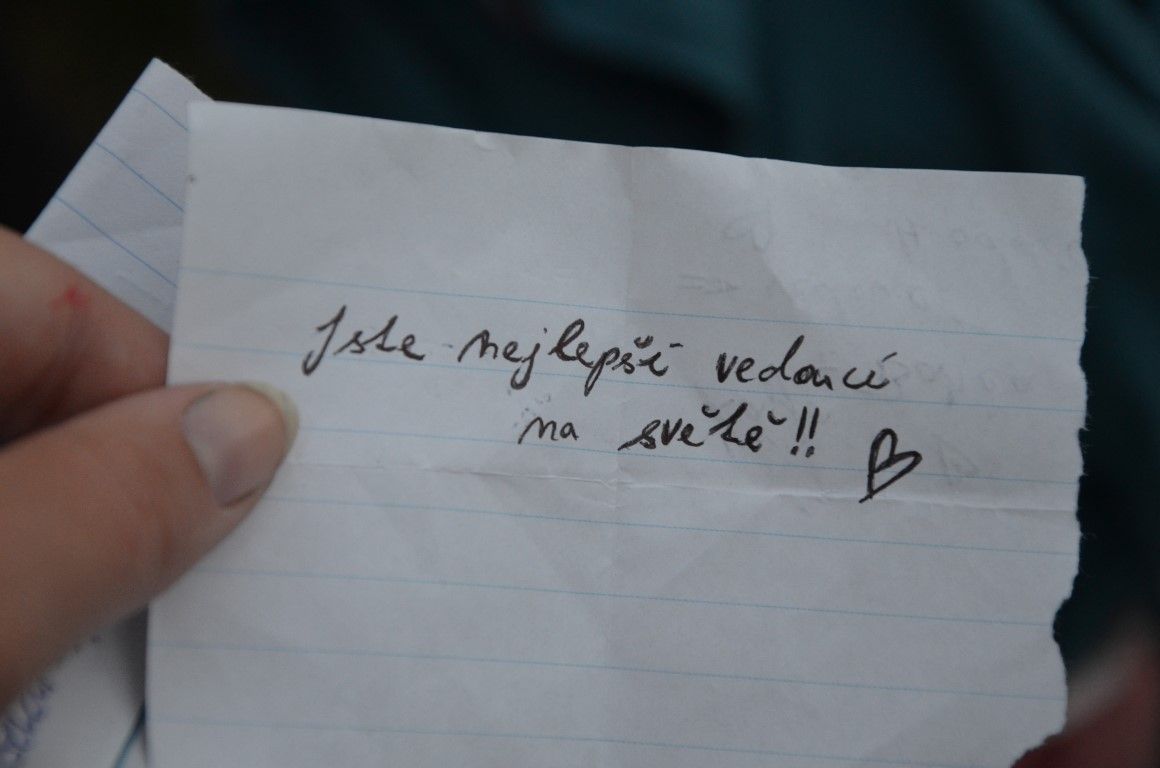 Jste nejlepší vedoucí
na světě!!